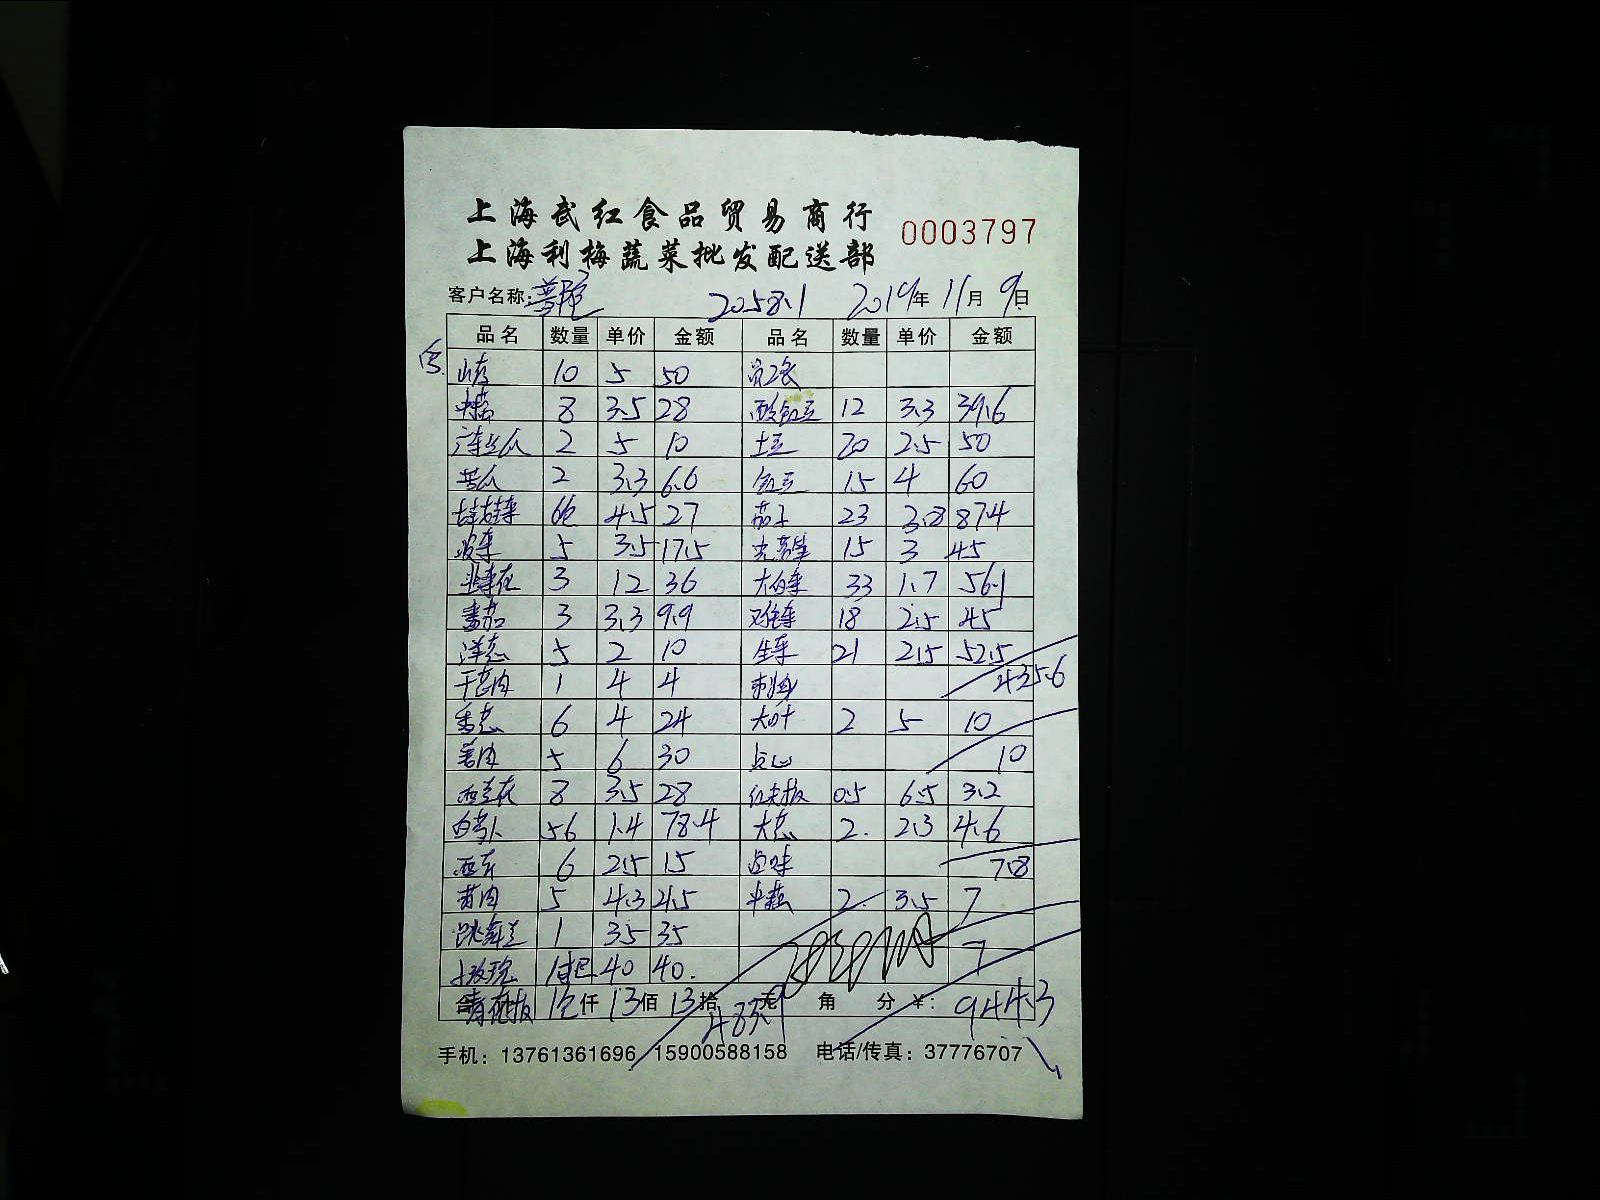 上海武红食品贸易商行
上海利梅蔬菜批发配送部
0003797
客户名称: 2058.1 2019年 11月 9日
品名 数量 单价 金额 品名 数量 单价 金额
山药 10 5 50
8 3.5 28 酸豇豆 12 3.3 39.6
2 5 10 土豆 20 2.5 50
苦瓜 2 3.3 6.6 豇豆 15 4 60
4.5 27 茄子 23 3.8 87.4
菠菜 5 3.5 17.5 15 3 45
韭菜花 3 12 36 大白菜 33 1.7 56.1
番茄 3 3.3 9.9 18 2.5 45
洋葱 5 2 10 生菜 21 2.5 52.5
干葱肉 1 4 4 刺身 435.6
香葱 6 4 24 大叶 2 5 10
姜肉 5 6 30 点心 10
西兰花 8 3.5 28 红尖椒 0.5 6.5 3.2
白萝卜 56 1.4 78.4 大葱 2. 2.3 4.6
西芹 6 2.5 15 卤味 7.8
5 4.3 21.5 2. 3.5 7
跳舞兰 1 35 35 7
小玫瑰 1 40 40.
仟 13 佰 13 拾 元 角 分 ¥: 944.3
483.9
手机: 13761361696 15900588158 电话/传真: 37776707